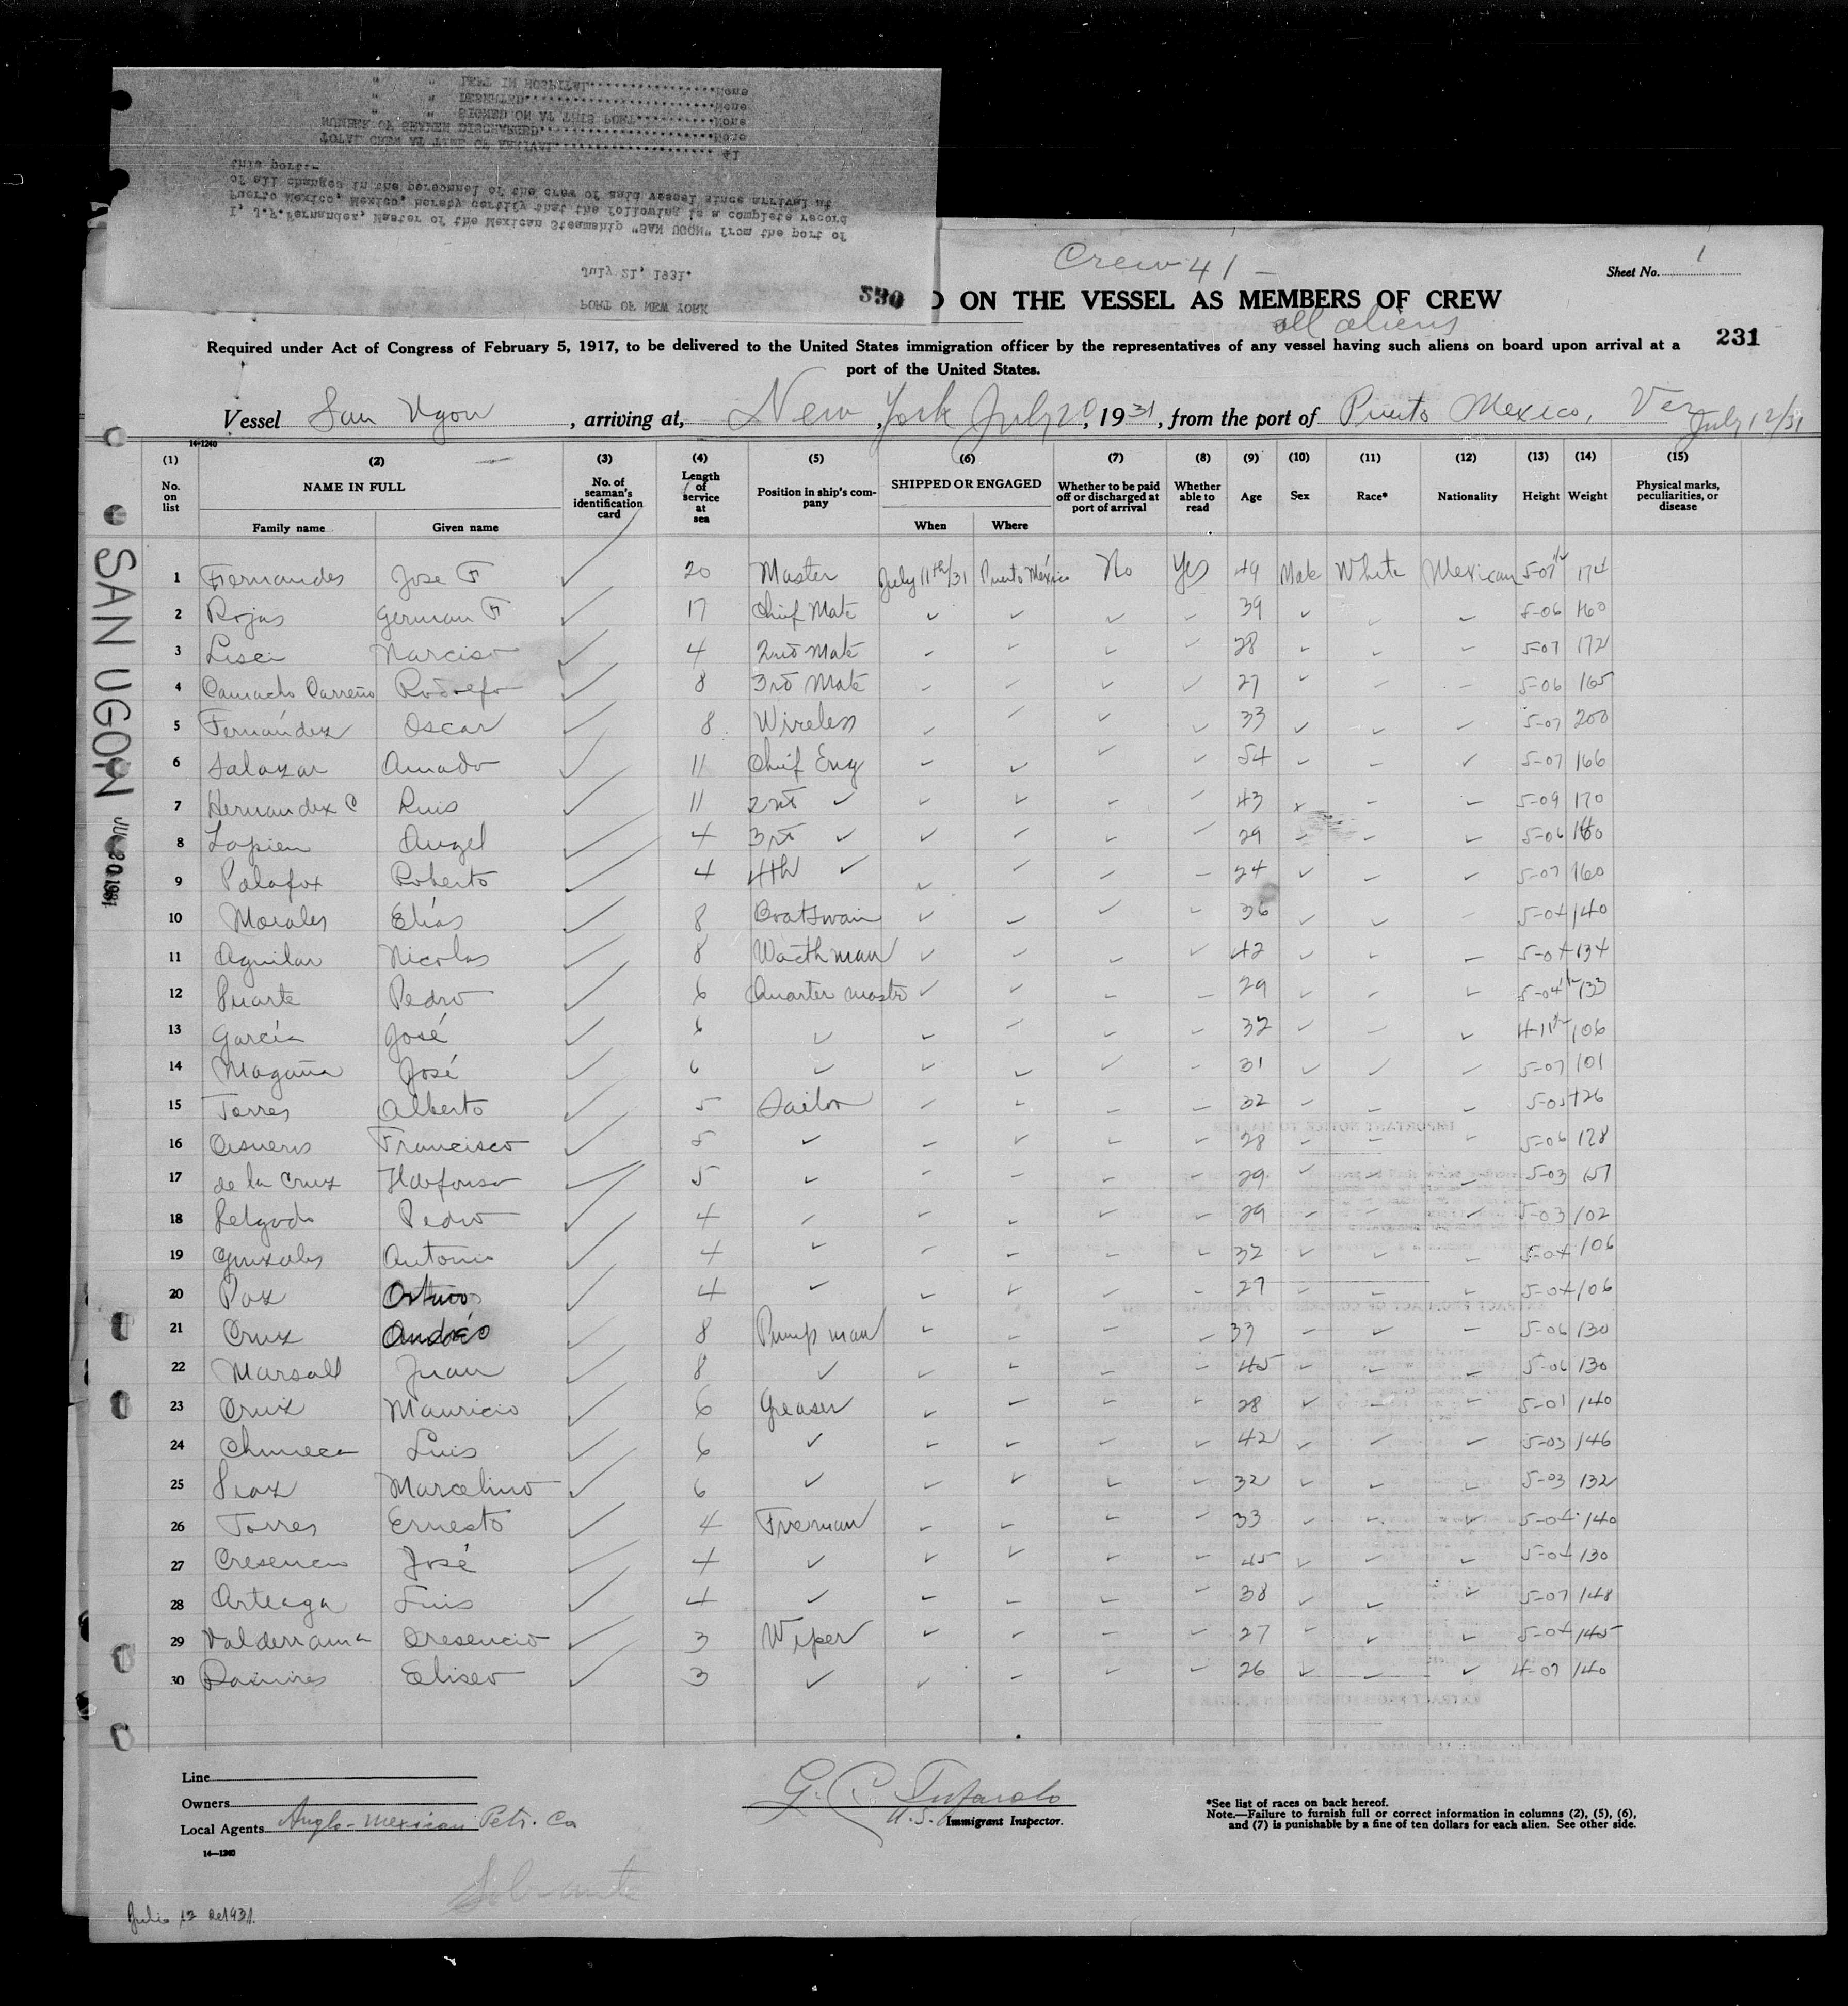 PORT OF NEW YORK
230
July 21, 1931.
I, J.F.Fernandez, Master of the Mexican Steamship "SAN UGON" from the port of
Puerto Mexico, Mexico, hereby certify that the following is a complete record
of all changes in the personnel of the crew of said vessel since arrival at
this port:-
TOTAL CREW AT TIME OF ARRIVAL.................... 41
NUMBER OF SEAMEN DISCHARGED......................None
" " SIGNED ON AT THIS PORT..........None
" " DESERTED........................None
" " LEFT IN HOSPITAL................None
Crew 41 -
Sheet No. 1
ON THE VESSEL AS MEMBERS OF CREW
all aliens
231
Required under Act of Congress of February 5, 1917, to be delivered to the United States immigration officer by the representatives of any vessel having such aliens on board upon arrival at a
port of the United States.
Vessel San Ugon, arriving at, New York July 20, 1931, from the port of Puerto Mexico, Ver July 12/31
14-1240
(1) (2) (3) (4) (5) (6) (7) (8) (9) (10) (11) (12) (13) (14) (15)
No. on list NAME IN FULL No. of seaman's identification card Length of service at sea Position in ship's company SHIPPED OR ENGAGED Whether to be paid off or discharged at port of arrival Whether able to read Age Sex Race* Nationality Height Weight Physical marks, peculiarities, or disease
Family name Given name When Where
1 Fernandes Jose F ✓ 20 Master July 11th/31 Puerto México No Yes 49 Male White Mexican 5-07½ 174
2 Rojas German F ✓ 17 Chief Mate ✓ ✓ ✓ ✓ 39 ✓ ✓ ✓ 5-06 160
3 Lisci Narciso ✓ 4 2nd Mate ✓ ✓ ✓ ✓ 28 ✓ ✓ ✓ 5-07 172
4 Camacho Carreño Rodolfo ✓ 8 3rd Mate ✓ ✓ ✓ ✓ 27 ✓ ✓ ✓ 5-06 165
5 Fernández Oscar ✓ 8 Wireless ✓ ✓ ✓ ✓ 33 ✓ ✓ ✓ 5-07 200
6 Salazar Amado ✓ 11 Chief Eng ✓ ✓ ✓ ✓ 54 ✓ ✓ ✓ 5-07 166
7 Hernandez C Luis ✓ 11 2nd ✓ ✓ ✓ ✓ ✓ 43 ✓ ✓ ✓ 5-09 170
8 Lapien Angel ✓ 4 3rd ✓ ✓ ✓ ✓ ✓ 29 ✓ ✓ ✓ 5-06 160
9 Palafox Roberto ✓ 4 4th ✓ ✓ ✓ ✓ ✓ 24 ✓ ✓ ✓ 5-07 160
10 Morales Elías ✓ 8 Boatswain ✓ ✓ ✓ ✓ 36 ✓ ✓ ✓ 5-04 140
11 Aguilar Nicolas ✓ 8 Wacthman ✓ ✓ ✓ ✓ 42 ✓ ✓ ✓ 5-04 134
12 Duarte Pedro ✓ 6 Quarter mastr ✓ ✓ ✓ ✓ 29 ✓ ✓ ✓ 5-04½ 133
13 García José ✓ 6 ✓ ✓ ✓ ✓ ✓ 32 ✓ ✓ ✓ 4-11½ 106
14 Magaña José ✓ 6 ✓ ✓ ✓ ✓ ✓ 31 ✓ ✓ ✓ 5-07 101
15 Torres Alberto ✓ 5 Sailor ✓ ✓ ✓ ✓ 32 ✓ ✓ ✓ 5-05 126
16 Cisneros Francisco ✓ 5 ✓ ✓ ✓ ✓ ✓ 28 ✓ ✓ ✓ 5-06 128
17 de la Cruz Ildefonso ✓ 5 ✓ ✓ ✓ ✓ ✓ 29 ✓ ✓ ✓ 5-03 157
18 Delgado Pedro ✓ 4 ✓ ✓ ✓ ✓ ✓ 29 ✓ ✓ ✓ 5-03 102
19 Gonzales Antonio ✓ 4 ✓ ✓ ✓ ✓ ✓ 32 ✓ ✓ ✓ 5-04 106
20 Paz Arturo ✓ 4 ✓ ✓ ✓ ✓ ✓ 27 ✓ ✓ ✓ 5-04 106
21 Cruz Andrés ✓ 8 Pump man ✓ ✓ ✓ ✓ 33 ✓ ✓ ✓ 5-06 130
22 Marsall Juan ✓ 8 ✓ ✓ ✓ ✓ ✓ 45 ✓ ✓ ✓ 5-06 130
23 Cruz Mauricio ✓ 6 Greaser ✓ ✓ ✓ ✓ 28 ✓ ✓ ✓ 5-01 140
24 Luis ✓ 6 ✓ ✓ ✓ ✓ ✓ 42 ✓ ✓ ✓ 5-03 146
25 Diaz Marcelino ✓ 6 ✓ ✓ ✓ ✓ ✓ 32 ✓ ✓ ✓ 5-03 132
26 Torres Ernesto ✓ 4 Fireman ✓ ✓ ✓ ✓ 33 ✓ ✓ ✓ 5-04 140
27 Cresencio José ✓ 4 ✓ ✓ ✓ ✓ ✓ 45 ✓ ✓ ✓ 5-04 130
28 Arteaga Luis ✓ 4 ✓ ✓ ✓ ✓ ✓ 38 ✓ ✓ ✓ 5-07 148
29 Valderrama Cresencio ✓ 3 Wiper ✓ ✓ ✓ ✓ 27 ✓ ✓ ✓ 5-04 145
30 Ramires Eliseo ✓ 3 ✓ ✓ ✓ ✓ ✓ 26 ✓ ✓ ✓ 4-07 140
SAN UGON JUL 20 1931
Line
Owners
Local Agents Anglo-Mexican Petr. Co
14-1240
G. C. Tufarolo
U.S. Immigrant Inspector.
*See list of races on back hereof.
Note.—Failure to furnish full or correct information in columns (2), (5), (6),
and (7) is punishable by a fine of ten dollars for each alien. See other side.
Julio 12 de 1931.